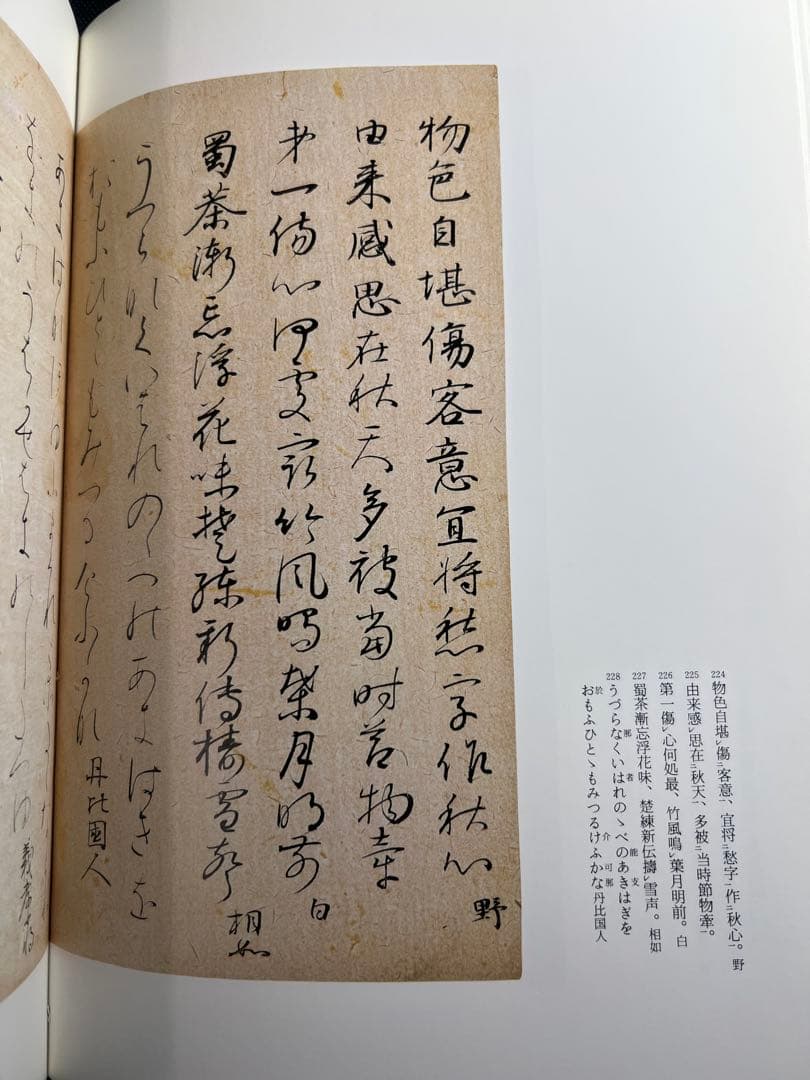 224 物色自堪レ傷二客意一、宜将二愁字一作二秋心一。 野
225 由来感レ思在二秋天一、多被二当時節物牽一。
226 第一傷レ心何処最、竹風鳴レ葉月明前。 白
227 蜀茶漸忘浮花味、楚練新伝擣レ雪声。 相如
228 うづらなくいはれのゝべのあきはぎを
おもふひとゝもみつるけふかな 丹比国人
物色自堪傷客意宜将愁字作秋心 野
由来感思在秋天多被当時節物牽
第一傷心何処最竹風鳴葉月明前 白
蜀茶漸忘浮花味楚練新伝擣雪声 相如
うつらなくいはれのゝへのあきはきを
おもふひとゝもみつるけふかな 丹比国人